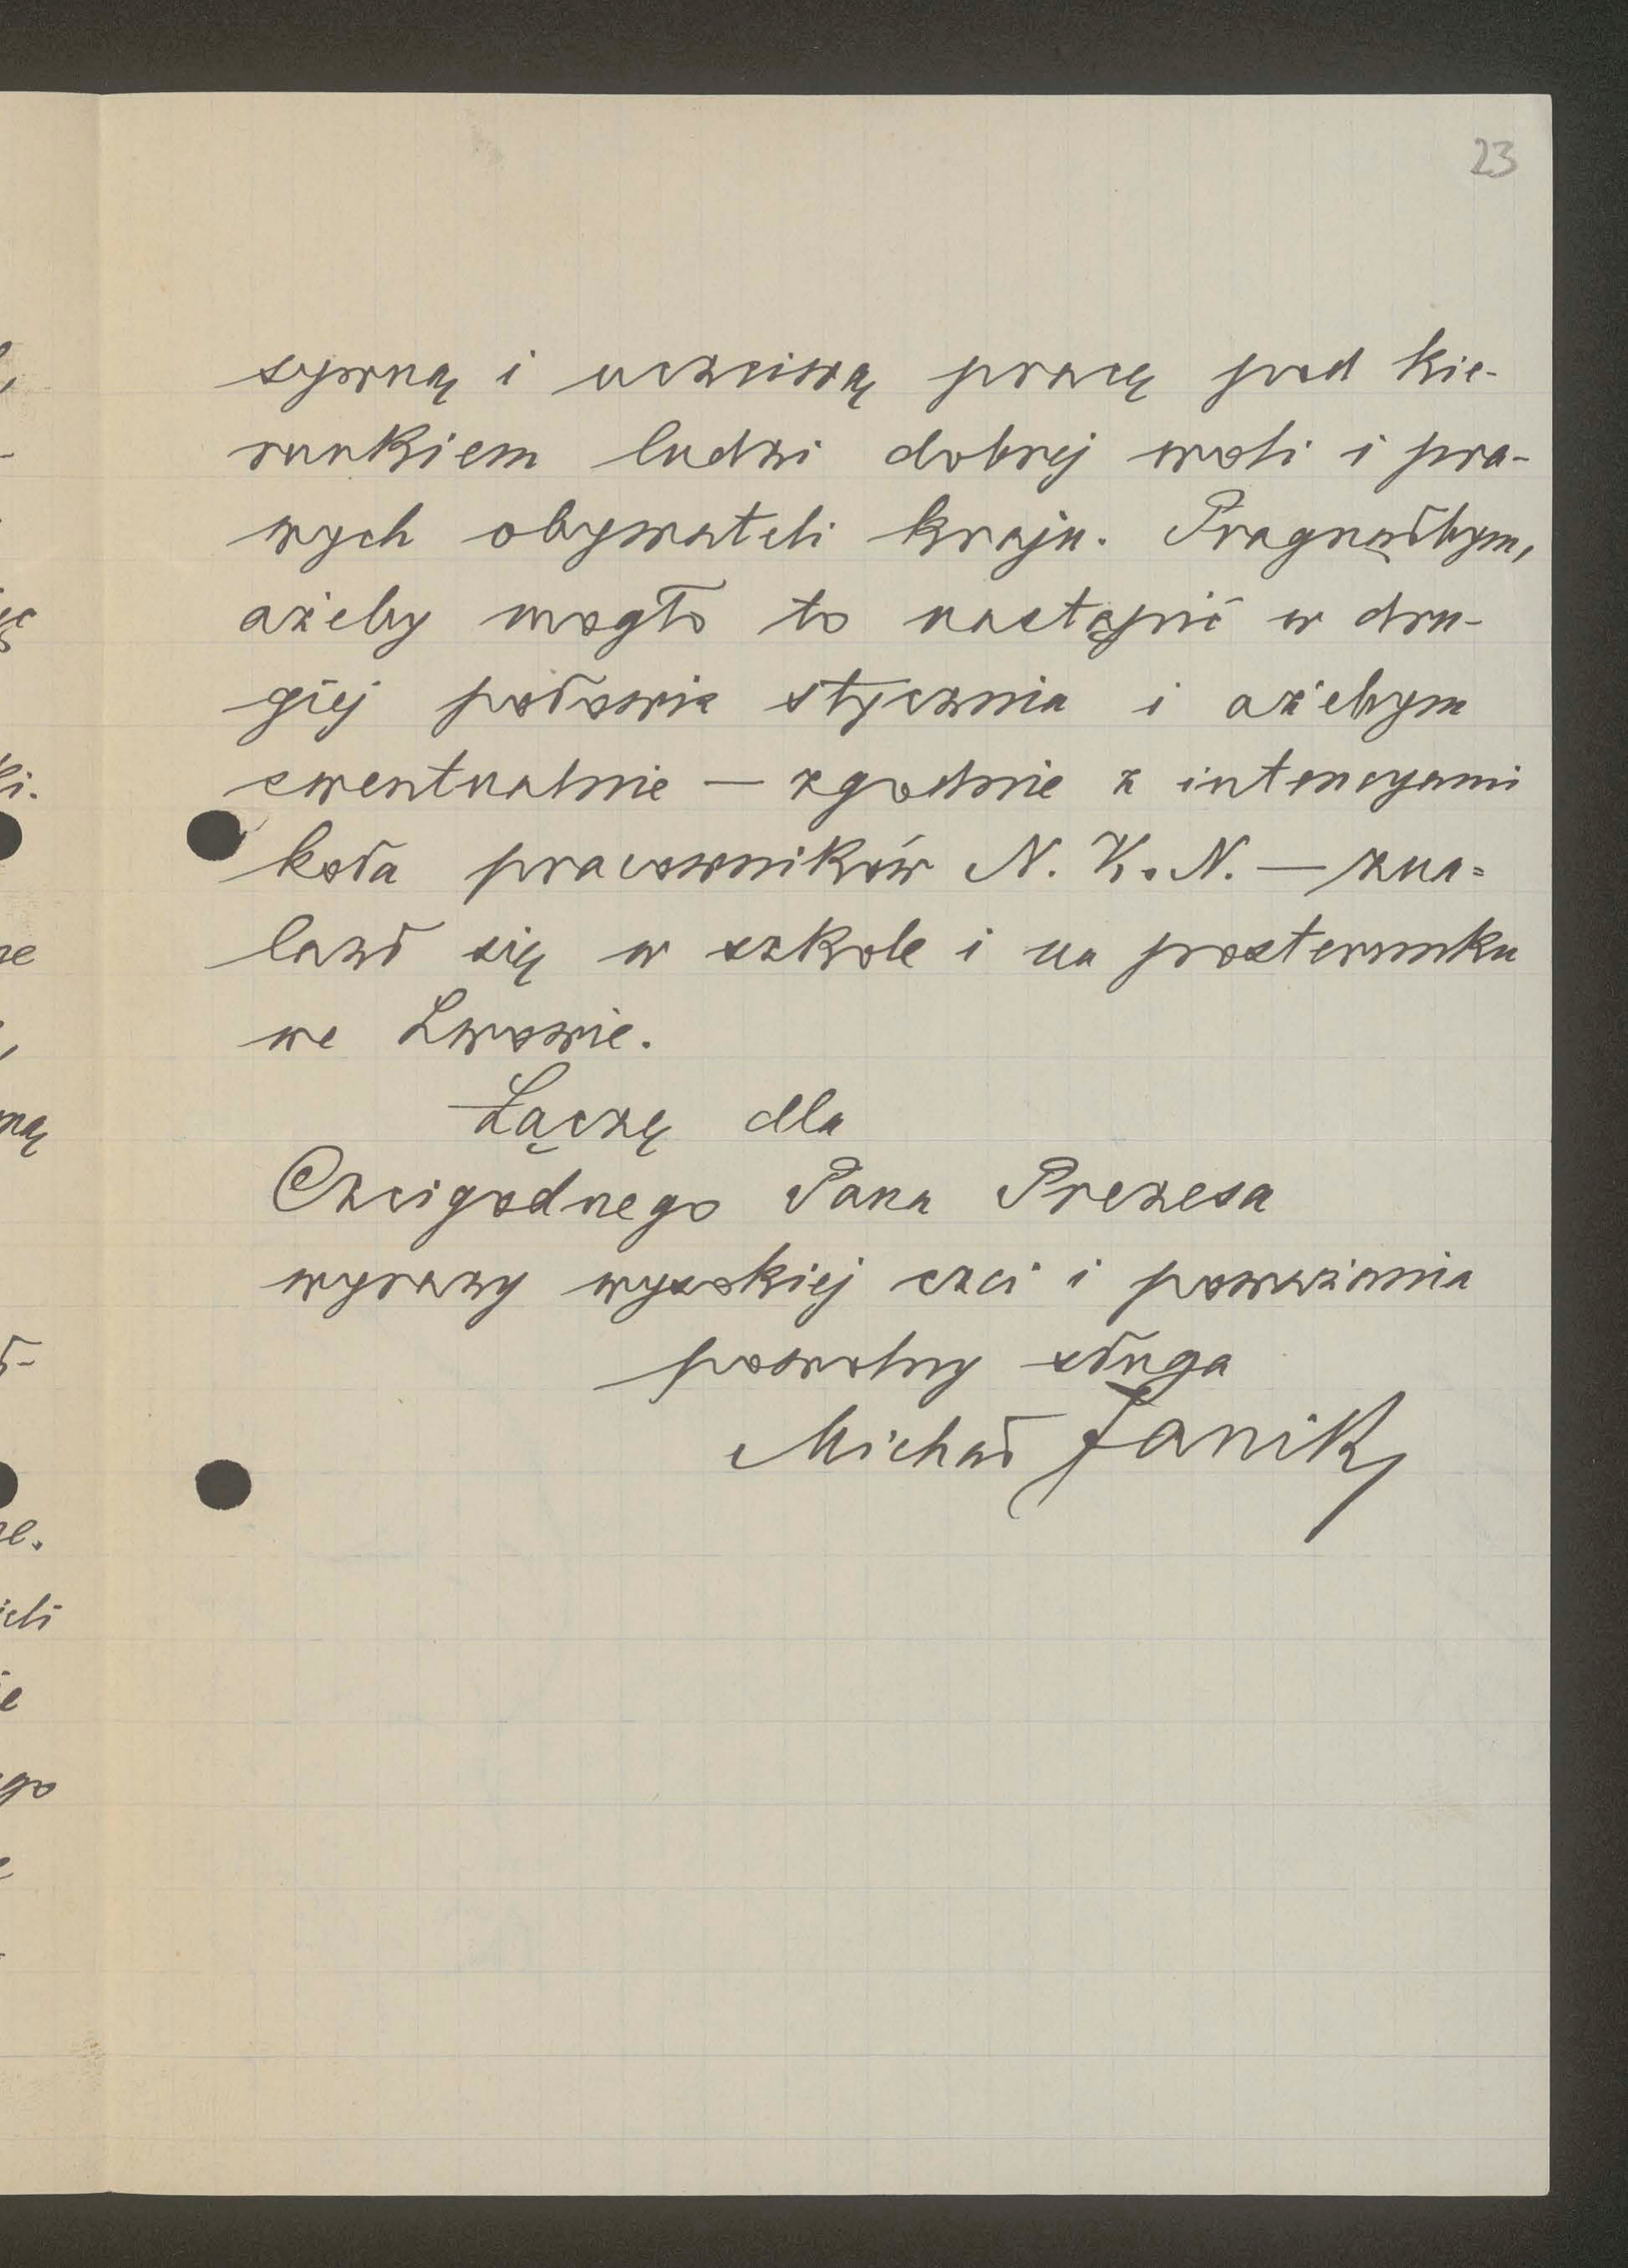 23
sywną i uczciwą pracę pod kie-
runkiem ludzi dobrej woli i pra-
wych obywateli kraju. Pragnąłbym,
ażeby mogło to nastąpić w dru-
giej połowie stycznia i ażebym
ewentualnie — zgodnie z intencyami
koła pracowników N. K. N. — zna=
lazł się w szkole i na posterunku
we Lwowie.
Łączę dla
Czcigodnego Pana Prezesa
wyrazy wysokiej czci i poważania
powolny sługa
Michał Janik